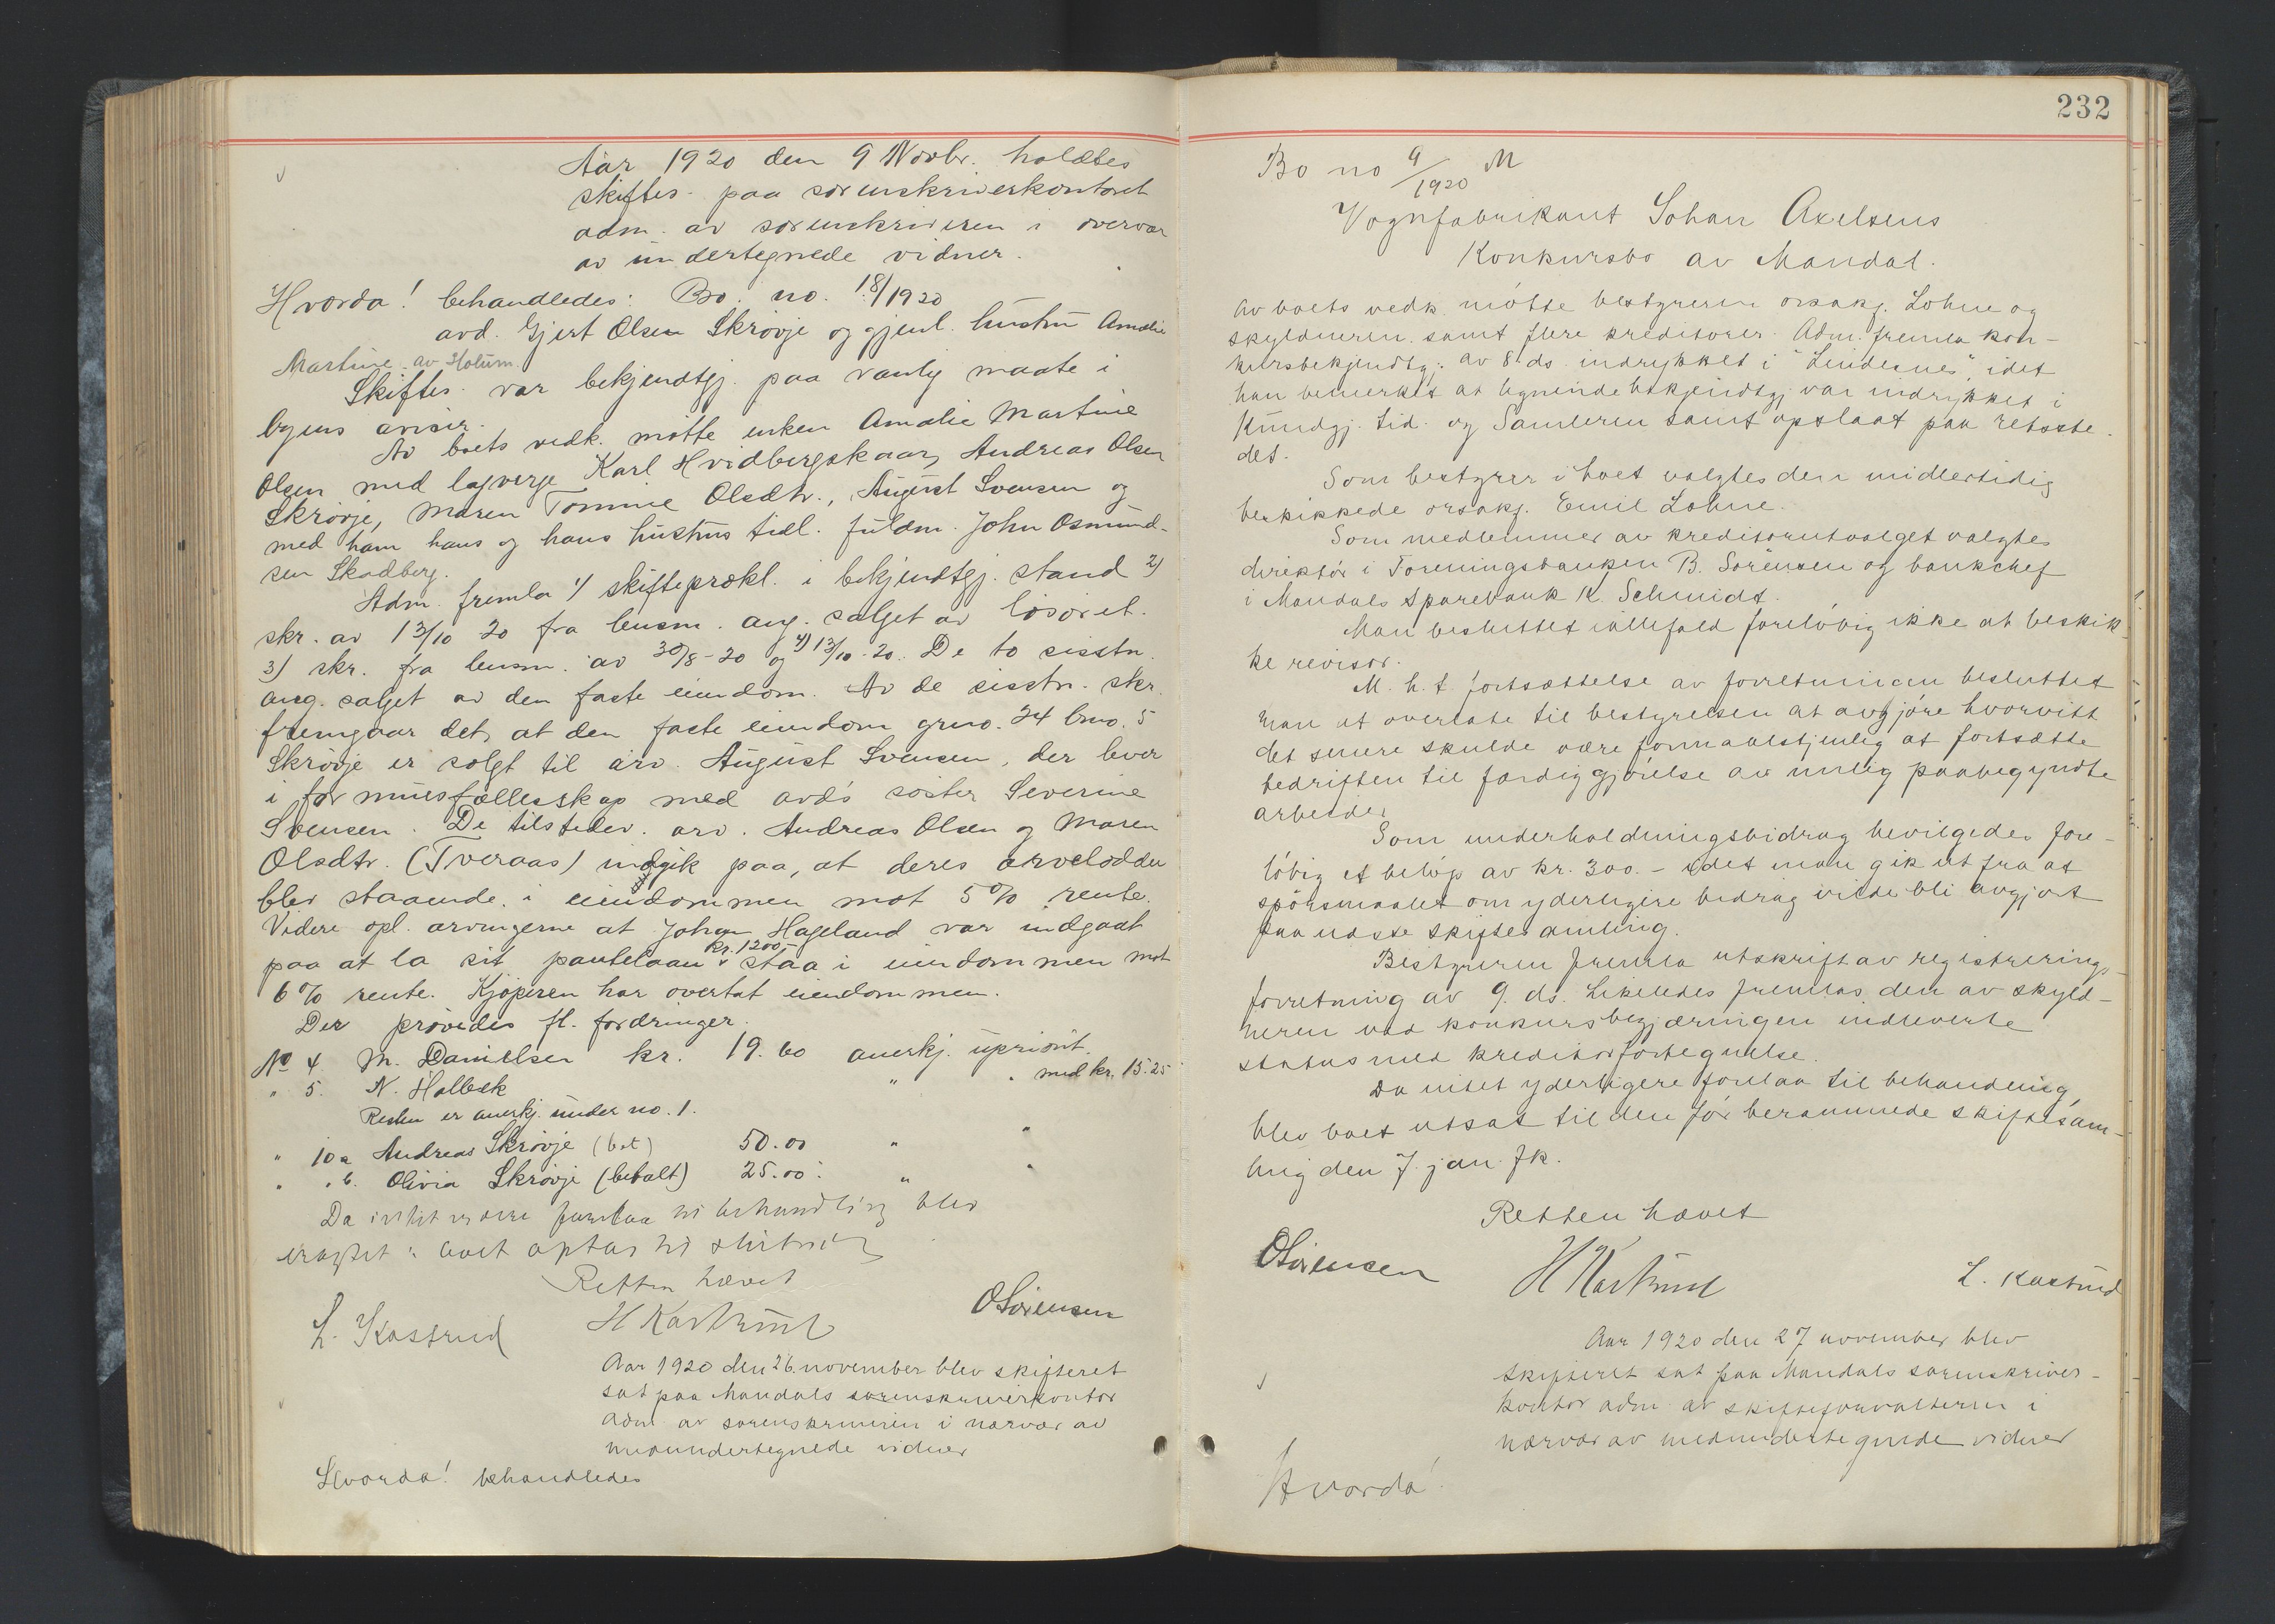 Aar 1920 den 9 Novbr. holdtes
skiftes. paa sorenskriverkontoret
adm. av sorenskriveren i overvær
av undertegnede vidner.
Hvorda! behandledes: Bo. no. 18/1920
avd. Gjert Olsen Skrövje og gjenl. hustru Amalie
Martine av Holum.
Skiftes. var bekjendtgj. paa vanlig maate i
byens aviser.
Av boets vedk. mötte enken Amalie Martine
Olsen med lagverge Karl Hvidbergskaar, Andreas Olsen
Skrövje, Maren Tomine Olsdtr., August Svensen og
med ham hans og hans hustrus tidl. fuldm. John Osmund-
sen Skadberg.
Adm. fremla 1) skifteprokl. i bekjendtgj. stand 2)
skr. av 13/10 20 fra lensm. ang. salget av lösöret.
3) skr. fra lensm. av 30/8-20 og 4) 13/10-20. De to sisstn.
ang. salget av den faste eiendom. Av de sisstn. skr.
fremgaar det, at den faste eiendom grno. 24 brno. 5
Skrövje er solgt til arv. August Svensen, der lever
i formuesfællesskap med avd's söster Severine
Svensen. De tilstedev. arv. Andreas Olsen og Maren
Olsdtr. (Tveraas) indgik paa, at deres arvelodder
blev staaende i eiendommen mot 5% rente.
Videre opl. arvingerne at Johan Hageland var indgaat
paa at la sit pantelaan kr. 1200,- staa i eiendommen mot
6% rente. Kjöperen har overtat eiendommen.
Der prövedes fl. fordringer.
No 4. M. Danielsen kr. 19.60 anerkj. uprior.
" 5. N. Holbek " " med kr. 15.25
Resten er anerkj. under no. 1.
" 10 a Andreas Skrövje (bet) 50.00 " "
" " b. Olivia Skrövje (betalt) 25.00 " "
Da intet videre forelaa til behandling blev
eragtet: boet optas til slutning
Retten hævet
L. Kastrud H Kastrud OSörensen
Aar 1920 den 26 november blev skifteret
sat paa Mandals sorenskriverkontor
adm av sorenskriveren i nærvær av
medundertegnede vidner
Hvorda! behandledes
232
Bo no 9/1920 M
Vognfabrikant Johan Axelsens
Konkursbo av Mandal.
Av boets vedk. mötte bestyreren orsakf. Lohne og
skyldneren samt flere kreditorer. Adm. fremla kon-
kursbekjendtgj. av 8 ds. indrykket i "Lindesnes", idet
han bemerket at lignende bekjendtgj var indrykket i
Kundgj. tid. og Samleren samt opslaat paa retsste-
det.
Som bestyrer i boet valgtes den midlertidig
beskikkede orsakf. Emil Lohne.
Som medlemmer av kreditorutvalget valgtes
direktör i Foreningsbanken B. Sörensen og bankchef
i Mandals Sparebank K. Schmidt.
Man besluttet iallefald foreløbig ikke at beskik-
ke revisor.
M. h. t fortsættelse av forretningen besluttet
man at overlate til bestyrelsen at avgjöre hvorvidt
det senere skulde være formaalstjenlig at fortsætte
bedriften til færdiggjörelse av mulig paabegyndte
arbeider
Som underholdningsbidrag bevilgedes fore-
löbig et belöp av kr. 300.- idet man gik ut fra at
spörsmaalet om yderligere bidrag vilde bli avgjort
paa næste skiftesamling.
Bestyreren fremla utskrift av registrerings-
forretning av 9. ds. Likeledes fremlas den av skyld-
neren ved konkursbegjæringen indleverte
status med kreditorfortegnelse.
Da intet yderligere forelaa til behandling
blev boet utsat til den för berammede skiftesam-
ling den 7. jan. fk.
Retten hævet
OSörensen H Kastrud L. Kastrud
Aar 1920 den 27 november blev
skifteret sat paa Mandals sorenskriver-
kontor adm av skifteforvalteren i
nærvær av medundertegnede vidner
Hvorda!